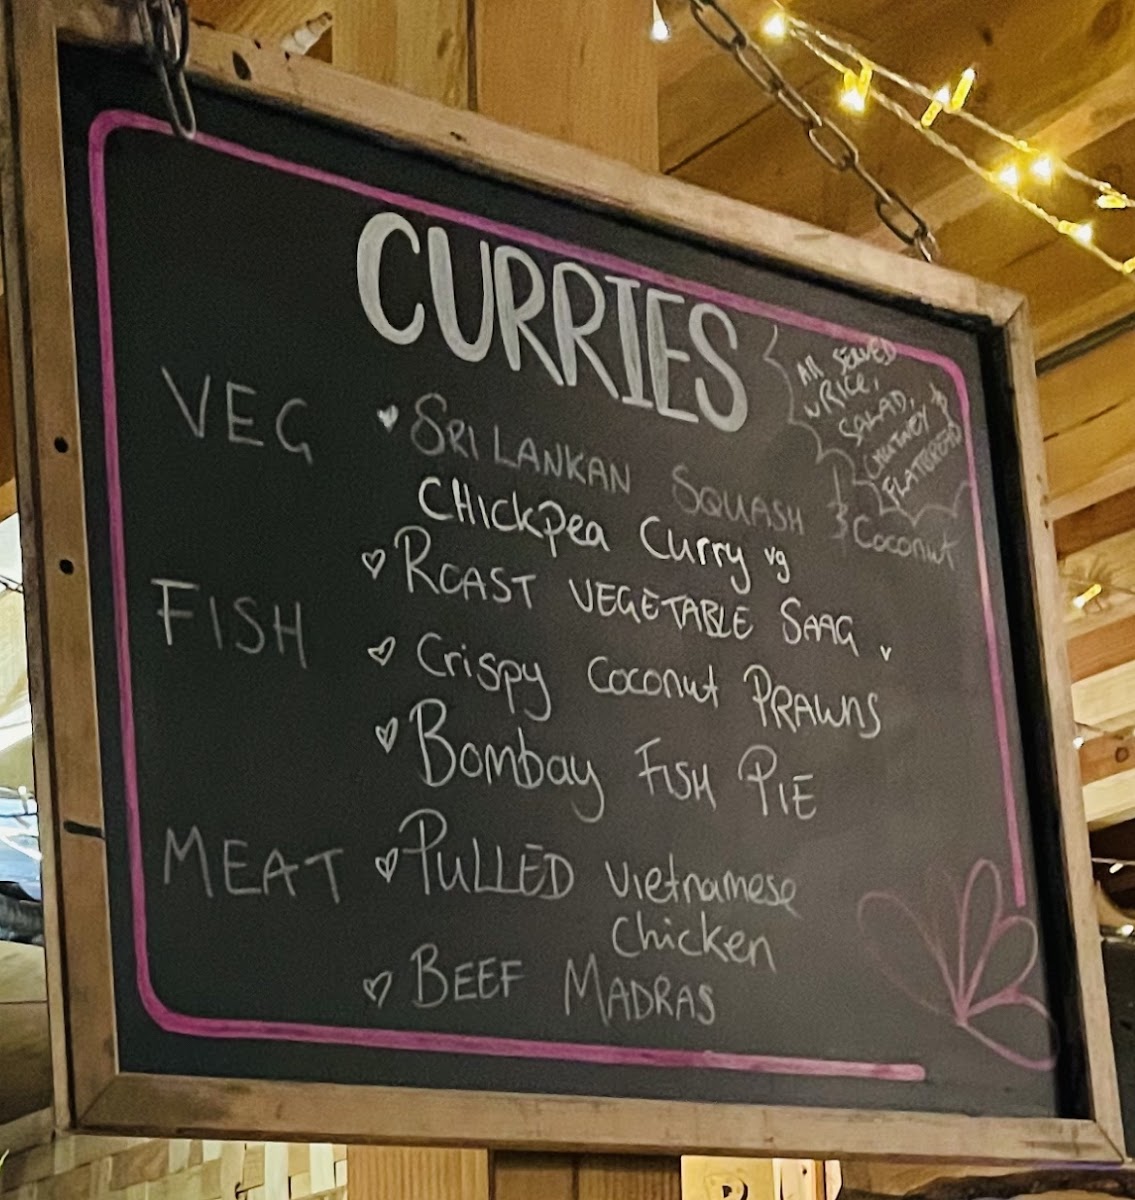 CURRIES
All SERVED
w RICE,
SALAD,
CHUTNEY &
FLATBREAD
VEG
SRI LANKAN SQUASH & Coconut
CHickpea Curry vg
ROAST VEGETABLE SAAG v
FISH
Crispy Coconut PRAWNS
Bombay FISH PIE
MEAT
PULLED Vietnamese
Chicken
BEEF MADRAS